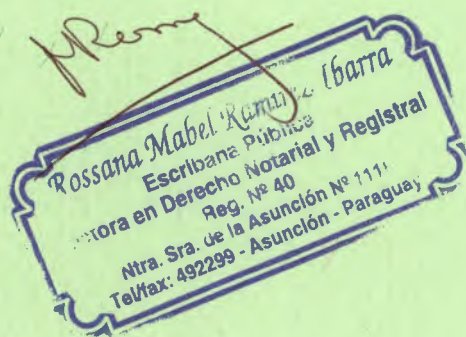 Rossana Mabel Ramirez Ibarra
Escribana Pública
en Derecho Notarial y Registral
Reg. Nº 40
Ntra. Sra. de la Asunción Nº
Tel/fax: 492299 - Asunción - Paraguay